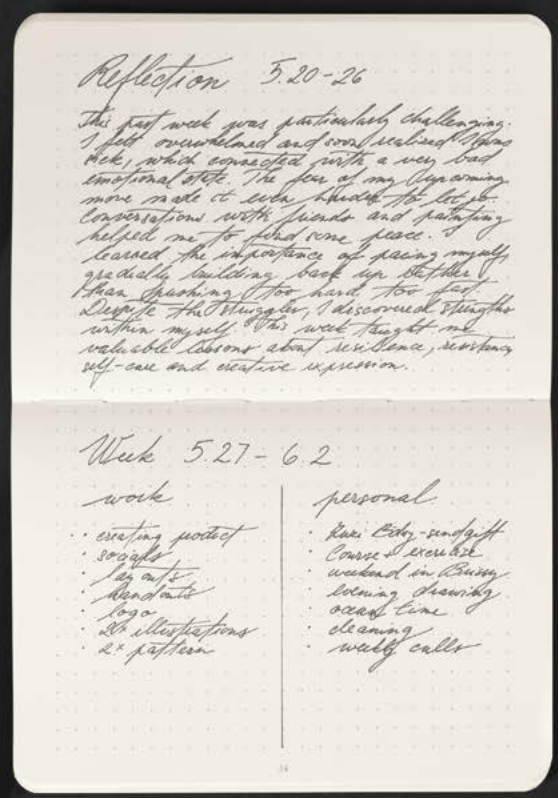 Reflection 5.20-26
This past week was particularly challenging.
I felt overwhelmed and soon realised I was
sick, which connected with a very bad
emotional state. The fear of my upcoming
move made it even harder to let go.
Conversations with friends and painting
helped me to find some peace. I
learned the importance of pacing myself,
gradually building back up rather
than pushing too hard too fast.
Despite the struggles, I discovered strengths
within myself. This week taught me
valuable lessons about resilience, resistency
self-care and creative expression.
Week 5.27-6.2
work
· creating product
· socials
· layouts
· handouts
· logo
· 2x illustrations
· 2x pattern
personal
· Bday-send gift
· Course + exercise
· weekend in
· evening drawing
· ocean time
· cleaning
· weekly calls